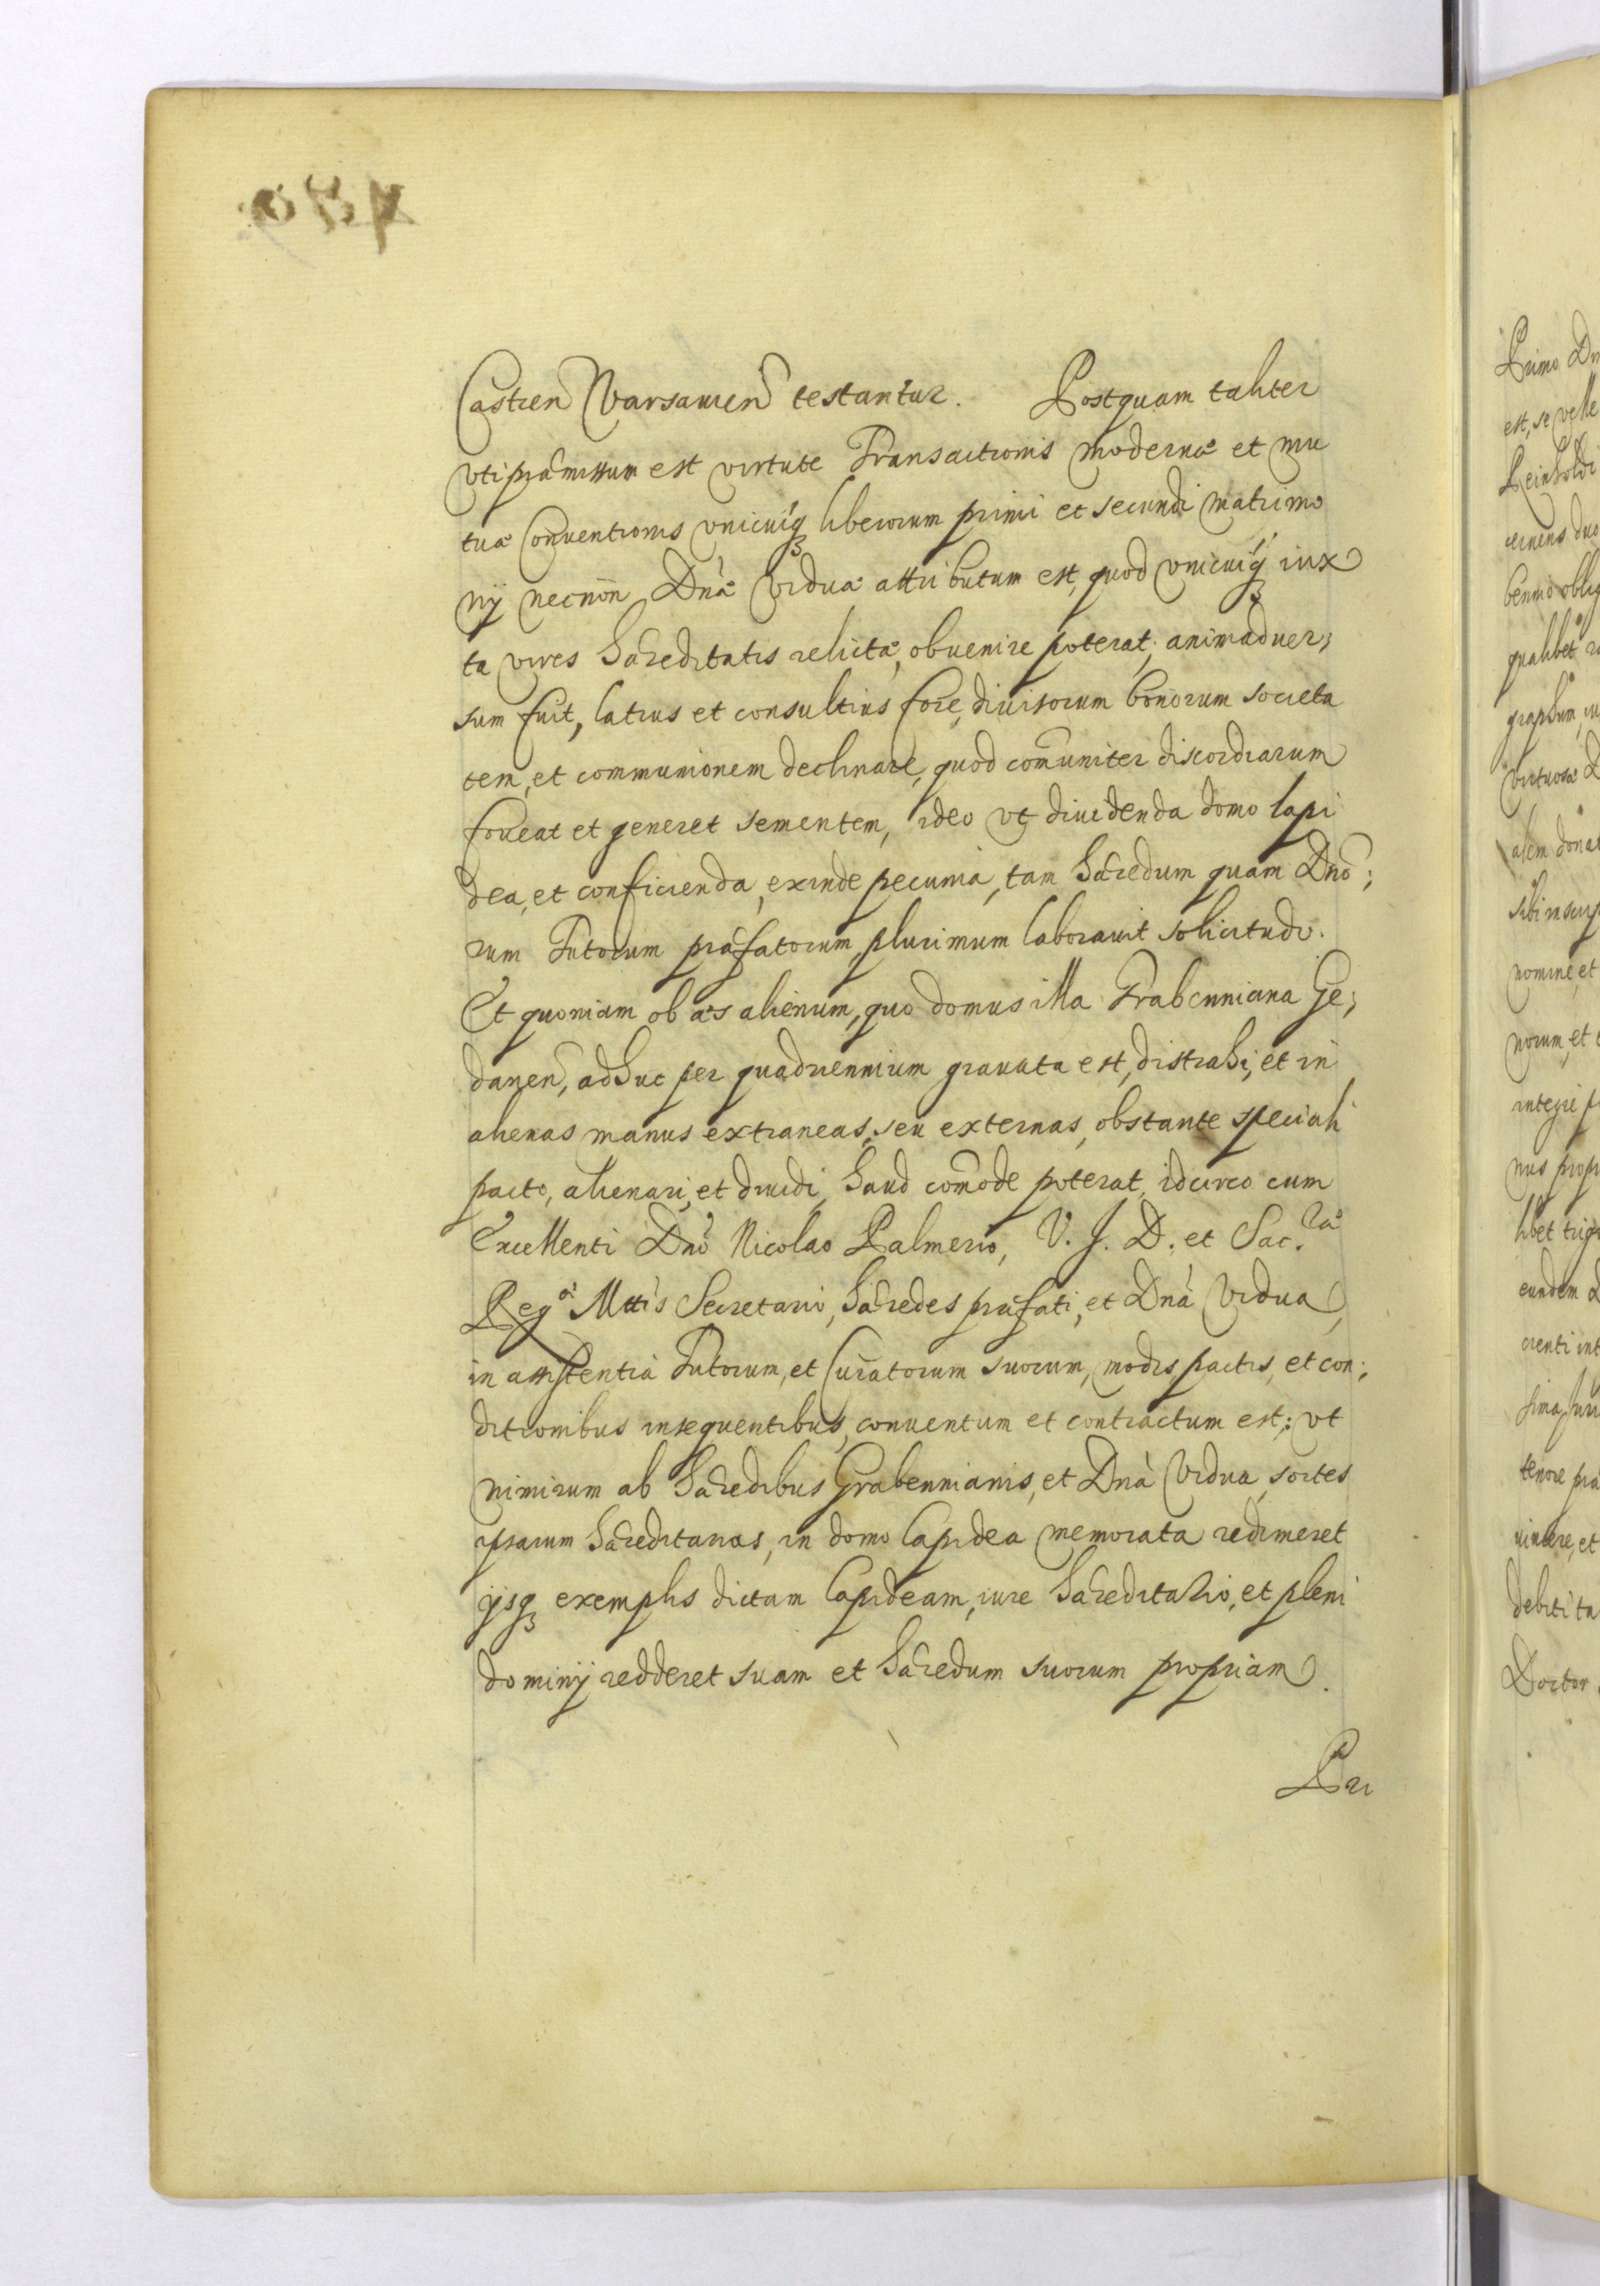 Castren Varsavien testantur. Postquam taliter
vti præmissum est virtute Transactionis modernæ et mu
tuæ Conventionis vnicuiq liberorum primi et secundi matrimo
nij necnon Dnæ Viduæ attributum est, quod vnicuiq iux
ta vires Hæreditatis relictæ, obvenire poterat; animaduer;
sum fuit, latius et consultius fore, divisorum bonorum societa
tem, et communionem declinare, quod comuniter discordiarum
foveat et generet sementem, ideo vt dividenda domo lapi
dea, et conficienda, exinde pecunia, tam Hæredum quam Dno;
rum Tutorum præfatorum, plurimum laboravit solicitudo.
Et quoniam ob æs alienum, quo domus illa Grabenniana Ge;
danen, adhuc per quadriennium gravata est, distrahi, et in
alienas manus extraneas, seu externas, obstante speciali
pacto, alienari, et dividi, haud comode poterat, idcirco cum
Excellenti Dno Nicolao Palmerio, V. J. D. et Sac. ræ
Reg æ Mttis Secretario, Hæredes præfati, et Dna Vidua,
in assistentia Tutorum, et Curatorum suorum, modis pactis, et con;
ditionibus insequentibus, conventum et contractum est; vt
nimirum ab Hæredibus Grabennianis, et Dna Vidua, sortes
ipsarum Hæreditarias, in domo lapidea memorata redimeret
ijsq exemplis dictam lapideam, iure Hæreditario, et pleni
dominij redderet suam et Hæredum suorum propriam.
Pri